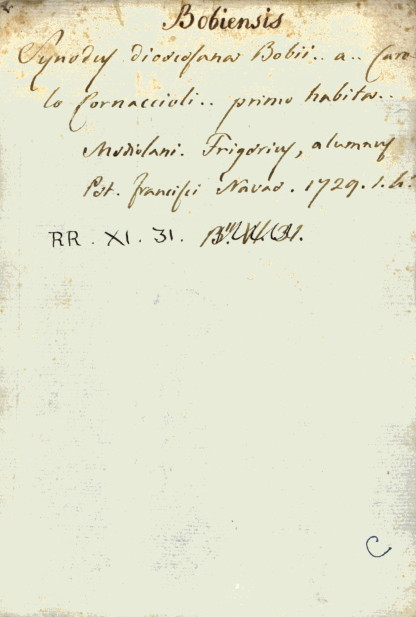 Bobiensis
Synodus dioecesana Bobii.. a.. Caro-
lo Cornaccioli.. primo habita..
Modiolani. Frigerius, alumnus
Pet. Francisci Navae. 1729. 1. 4.º
RR. XI. 31.
C